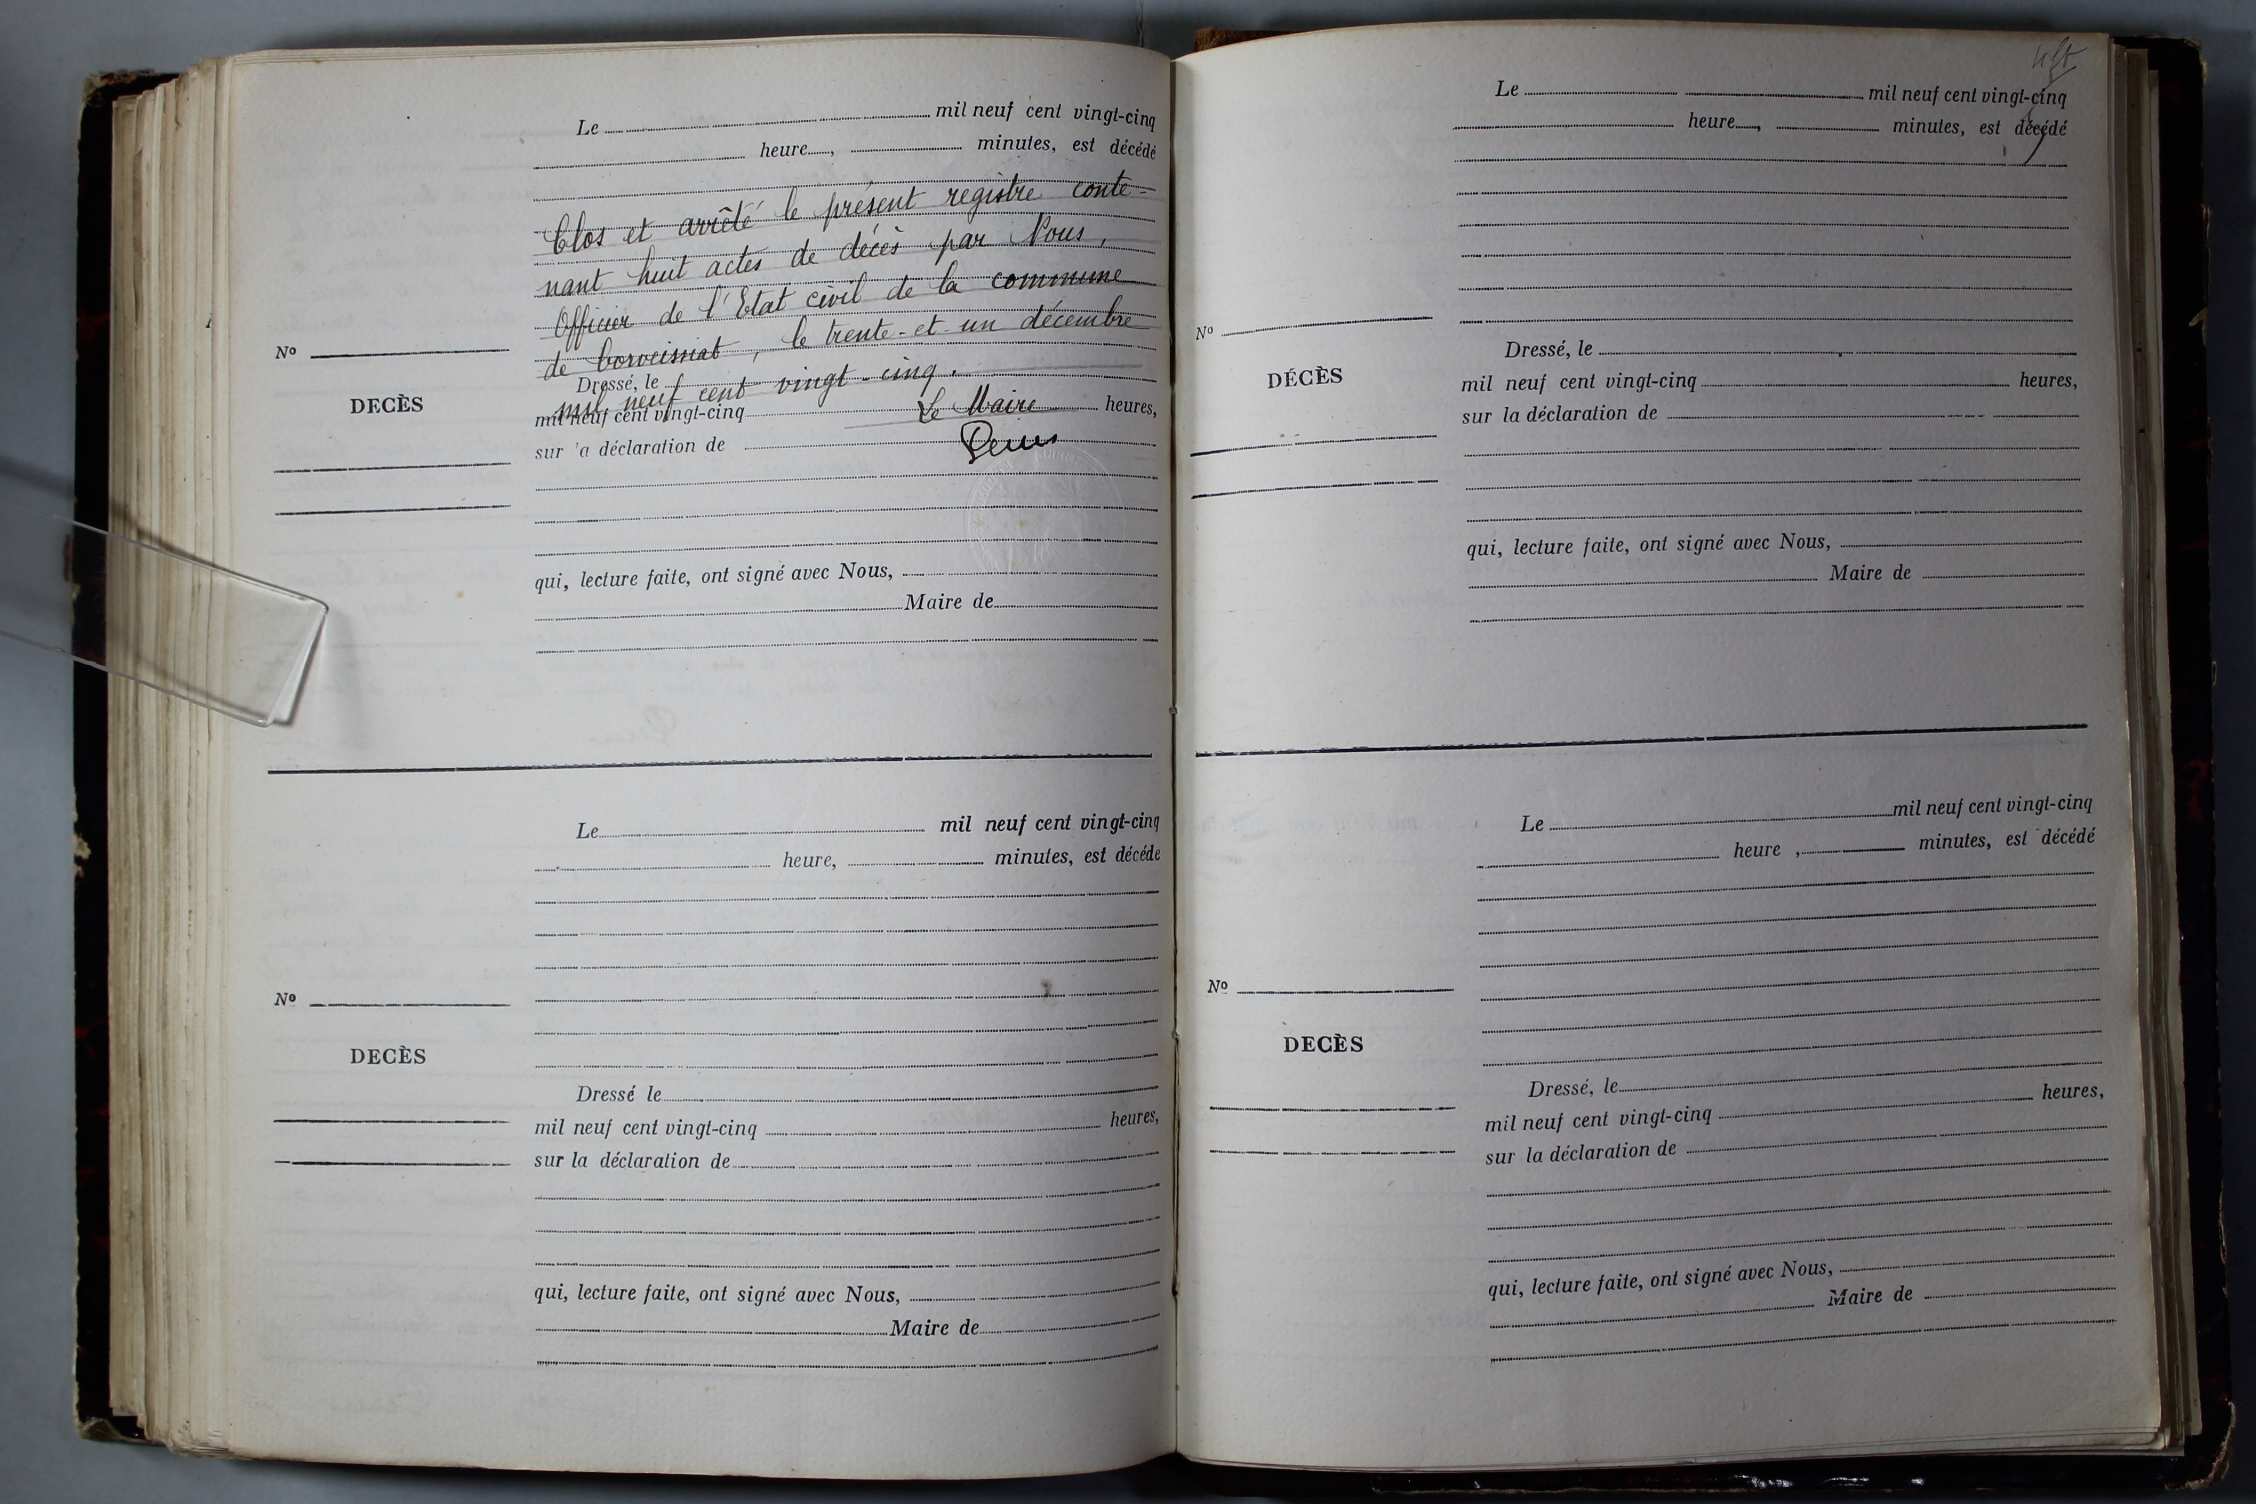 Le mil neuf cent vingt-cinq
heure , minutes, est décédé
Clos et arrêté le présent registre conte-
nant huit actes de décès par Nous,
Officier de l'Etat civil de la commune
de Corveissiat, le trente-et-un décembre
mil neuf cent vingt-cinq.
Nº
DECÈS
Dressé, le
mil neuf cent vingt-cinq heures,
Le Maire
sur la déclaration de
qui, lecture faite, ont signé avec Nous,
Maire de
Le mil neuf cent vingt-cinq
heure, minutes, est décédé
Nº
DECÈS
Dressé le
mil neuf cent vingt-cinq heures,
sur la déclaration de
qui, lecture faite, ont signé avec Nous,
Maire de
Le mil neuf cent vingt-cinq
heure , minutes, est décédé
Nº
DÉCÈS
Dressé, le
mil neuf cent vingt-cinq heures,
sur la déclaration de
qui, lecture faite, ont signé avec Nous,
Maire de
Le mil neuf cent vingt-cinq
heure , minutes, est décédé
Nº
DECÈS
Dressé, le
mil neuf cent vingt-cinq heures,
sur la déclaration de
qui, lecture faite, ont signé avec Nous,
Maire de